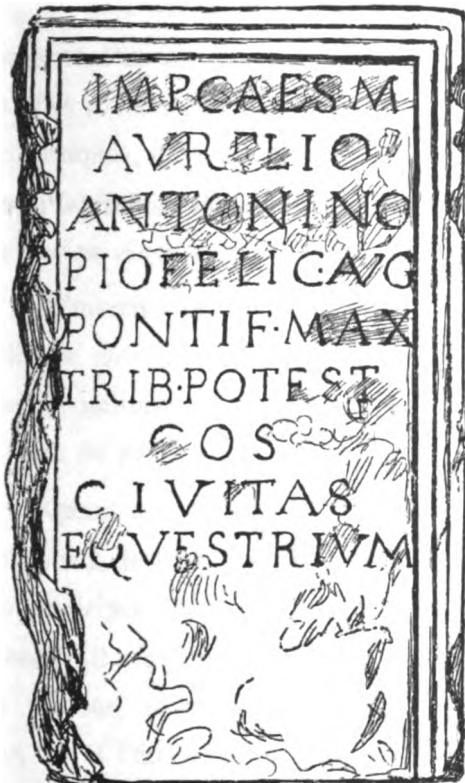 IMPCAESM
AVRELIO
ANTONINO
PIOFELIC·AVG
PONTIF·MAX
TRIB·POTEST
COS
CIVITAS
EQVESTRIVM